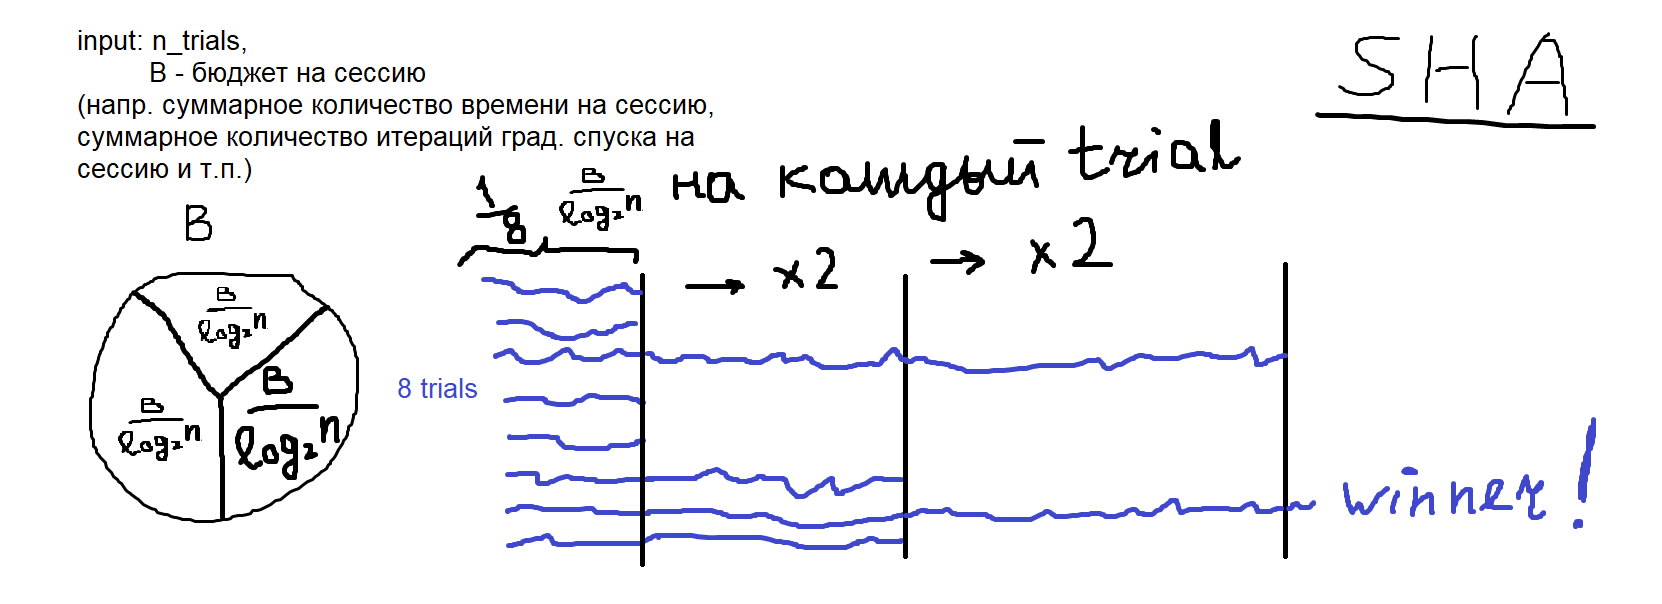 input: n_trials,
B - бюджет на сессию
(напр. суммарное количество времени на сессию,
суммарное количество итераций град. спуска на
сессию и т.п.)
SHA
1/8 B/log₂n на каждый trial
B
→ x2 → x2
B/log₂n
B/log₂n
B/log₂n
8 trials
winner!